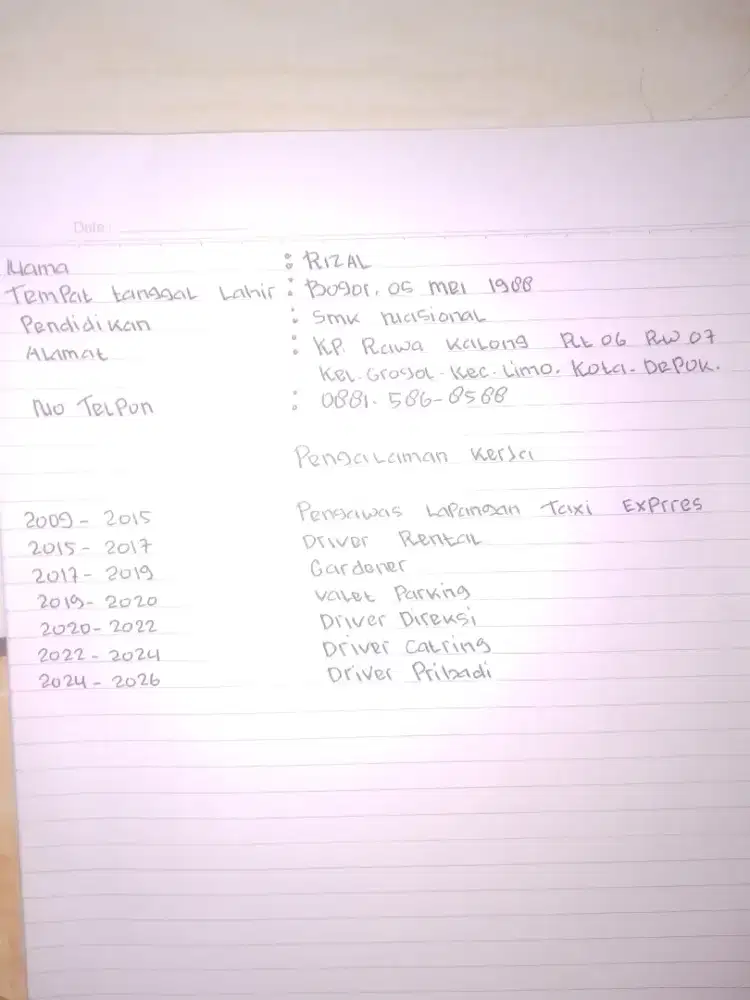 Date :
Nama : RIZAL
Tempat tanggal Lahir : Bogor, 05 mei 1988
Pendidikan : Smk nasional
Alamat : KP. Rawa Kalong Rt 06 RW 07
Kel. Grogol. Kec. Limo. Kota. DePok.
No TelPon : 0881. 586-8588
Pengalaman Kerja
2009 - 2015 Pengawas LaPangan Taxi ExPrres
2015 - 2017 Driver Rental
2017 - 2019 Gardener
2019 - 2020 Valet Parking
2020 - 2022 Driver Direksi
2022 - 2024 Driver Catring
2024 - 2026 Driver Pribadi